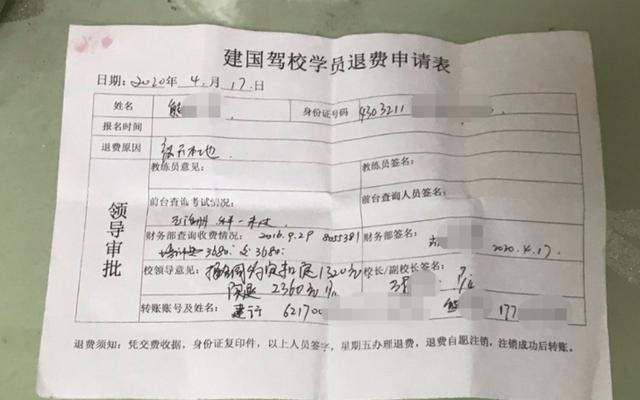 建国驾校学员退费申请表
日期：2020年4.月17.日
姓名 熊 身份证号码 4303211
报名时间
退费原因
教练员意见： 教练员签名：
领导审批
前台查询考试情况： 前台查询人员签名：
财务部查询收费情况：2016.9.29 8055381 财务部签名：
3680 2020.4.17.
校领导意见：按合同约定扣除1320元 校长/副校长签名：
2360元
转账账号及姓名：建行 621700 熊 177
退费须知：凭交费收据，身份证复印件，以上人员签字，星期五办理退费，退费自愿注销，注销成功后转账。